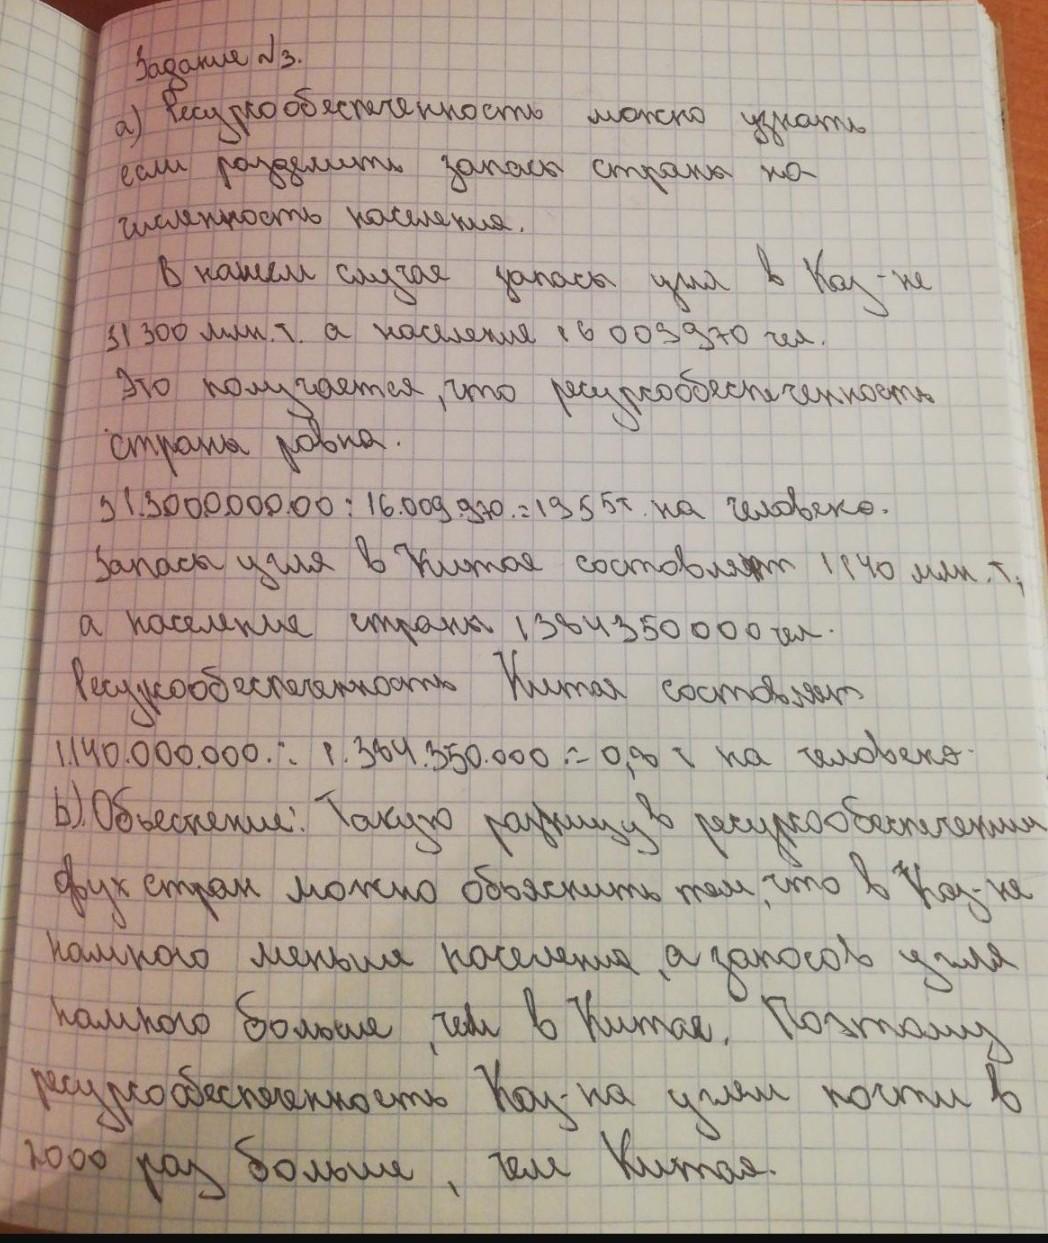 Задание №3.
а) Ресурсообеспеченность можно узнать
если разделить запасы страны на
численность населения.
В нашем случае запасы угля в Каз-не
31300 млн.т. а население 16 009970 чел.
Это получается, что ресурсообеспеченность
страны равна.
31.300000000 : 16.009.970.=1955т. на человека.
Запасы угля в Китае составляет 1140 млн.т,
а население страны 1384350000 чел.
Ресурсообеспеченность Китая составляет
1.140.000.000 : 1.384.350.000 = 0,8 т на человека.
b). Объеснение: Такую разницу в ресурсообеспечении
двух стран можно объяснить тем, что в Каз-не
намного меньше населения, а запасов угля
намного больше, чем в Китае. Поэтому
ресурсообеспеченность Каз-на углем почти в
2000 раз больше, чем Китая.